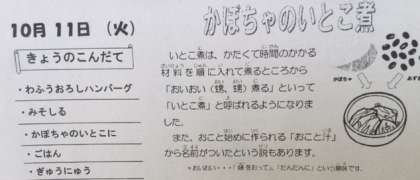 10月11日（火）
きょうのこんだて
・わふうおろしハンバーグ
・みそしる
・かぼちゃのいとこに
・ごはん
・ぎゅうにゅう
かぼちゃのいとこ煮
いとこ煮は、かたくて時間のかかる
材料を順に入れて煮るところから
「おいおい（甥、甥）煮る」といって
「いとこ煮」と呼ばれるようになりま
した。
また、おこと始めに作られる「おこと汁」
から名前がついたという説もあります。
＊おいおい・・・「順をおって」、「だんだんに」という意味です。
かぼちゃ